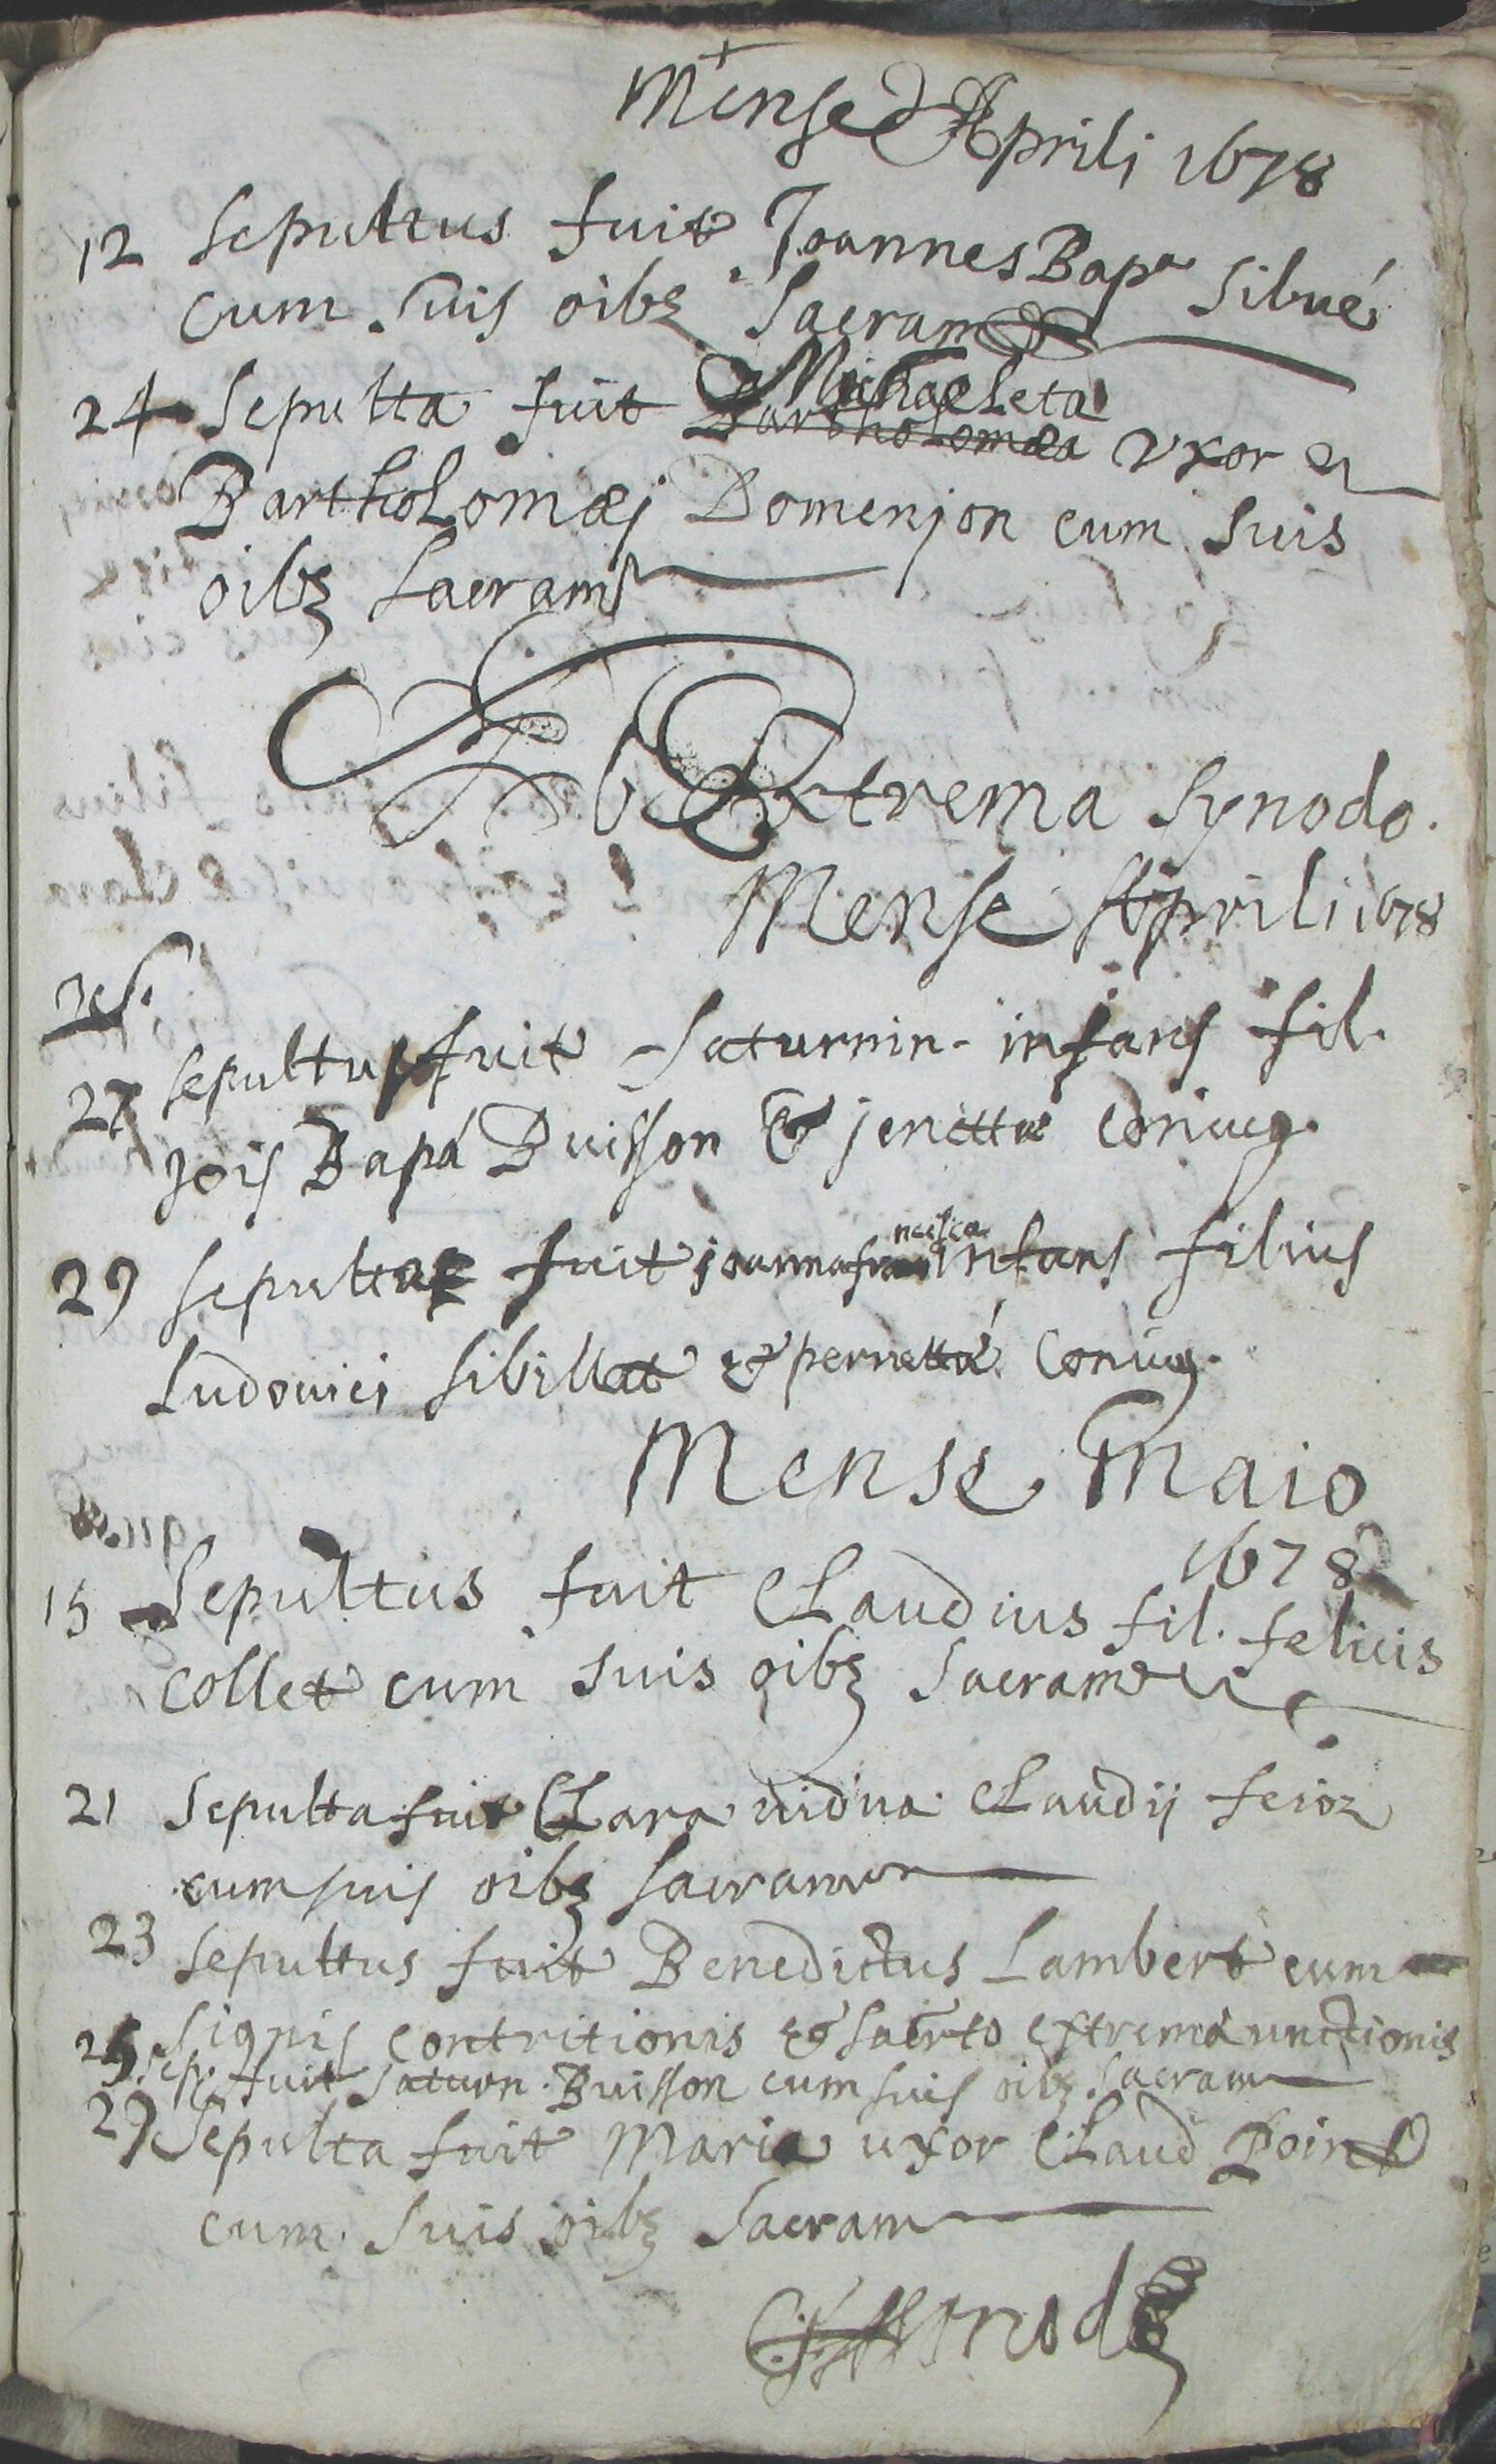 Mense Aprili 1678
12 Sepultus fuit Joannes Bapᵃ Silué
cum suis oibz Sacram
24 Sepulta fuit Michaeleta
Bartholomæa uxor
Bartholomæj Domenjon cum suis
oibz sacram
Ab Extrema Synodo.
Mense Aprili 1678
27 sepultus fuit Saturnin. infans fil.
jois Bapá Buisson & jenettæ coniug.
29 sepulta fuit joanna francisca infans filius
Ludovici sibillat & pernettá Coniug.
Mense Maio
1678
15 Sepultus fuit Claudius fil. felicis
collet cum suis oibz Sacram
21 Sepulta fuit Clara vidua Claudij feioz
cum suis oibz sacram
23 Sepultus fuit Benedictus Lambert cum
signis contritionis & sacrto extremæ unctionis
25 sep. fuit Saturn. Buisson cum suis oibz sacram
29 Sepulta fuit Maria uxor Claud
cum suis oibz Sacram